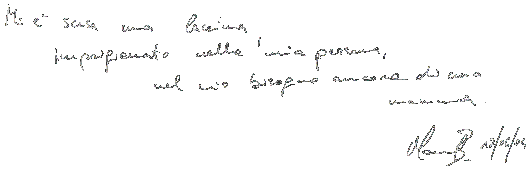 Mi è scesa una lacrima
imprigionato nella mia persona,
nel mio bisogno ancora di una
mamma.